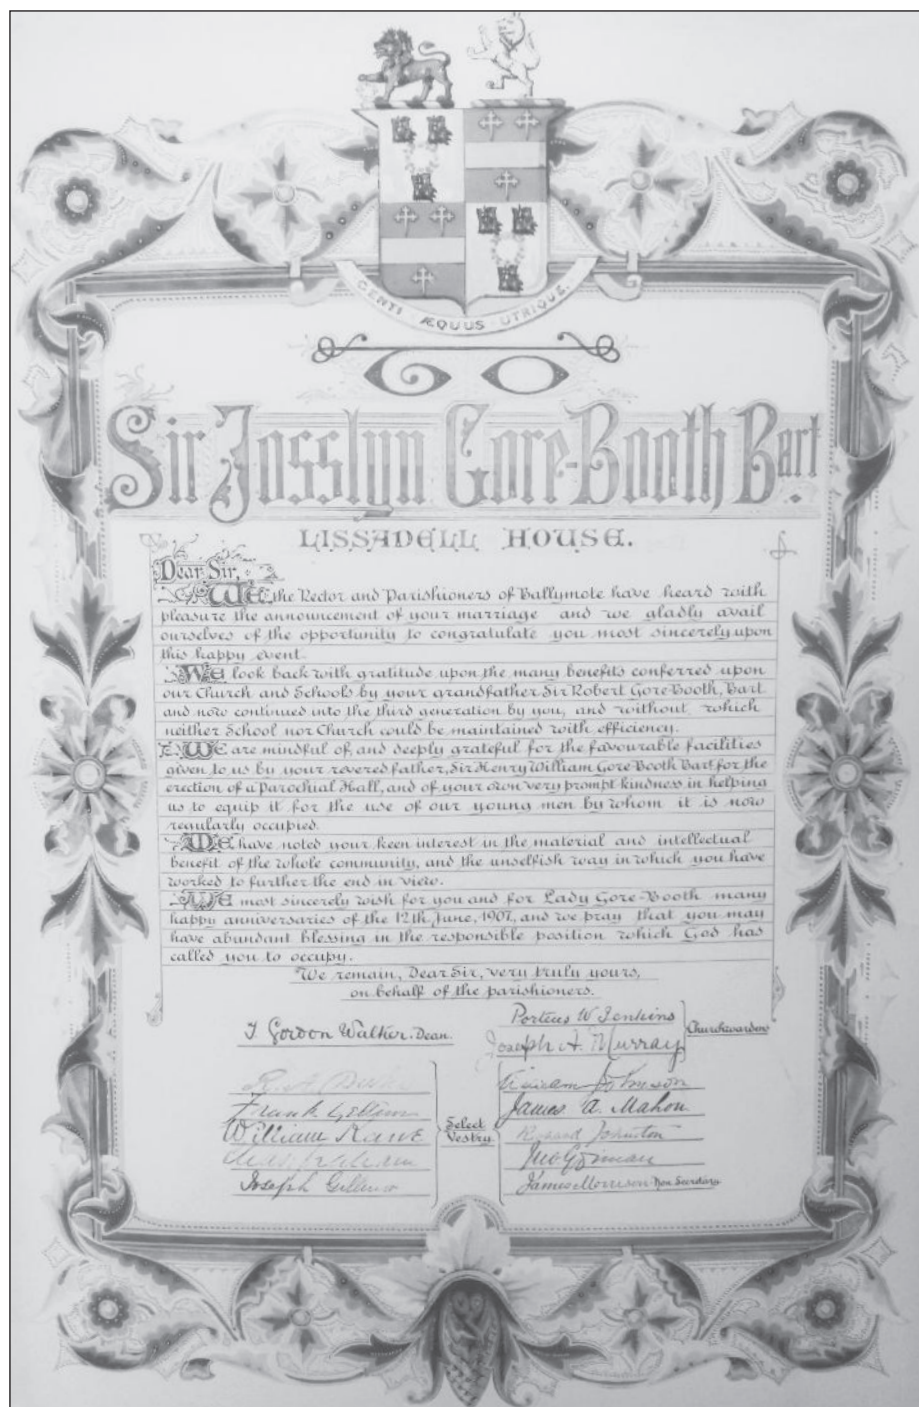 GENTI ÆQUUS UTRIQUE.
TO
Sir Josslyn Gore-Booth Bart.
LISSADELL HOUSE.
Dear Sir,
WE the Rector and Parishioners of Ballymote have heard with
pleasure the announcement of your marriage and we gladly avail
ourselves of the opportunity to congratulate you most sincerely upon
this happy event.
WE look back with gratitude upon the many benefits conferred upon
our Church and Schools by your grandfather Sir Robert Gore-Booth, Bart
and now continued into the third generation by you, and without which
neither School nor Church could be maintained with efficiency.
WE are mindful of, and deeply grateful for the favourable facilities
given to us by your revered father, Sir Henry William Gore-Booth Bart for the
erection of a Parochial Hall, and of your own very prompt kindness in helping
us to equip it for the use of our young men by whom it is now
regularly occupied.
WE have noted your keen interest in the material and intellectual
benefit of the whole community, and the unselfish way in which you have
worked to further the end in view.
WE most sincerely wish for you and for Lady Gore-Booth many
happy anniversaries of the 12th June, 1907, and we pray that you may
have abundant blessing in the responsible position which God has
called you to occupy.
We remain, Dear Sir, very truly yours,
on behalf of the parishioners.
T. Gordon Walker. Dean.
Porteus W Jenkins
Joseph A. Murray
Churchwardens
Frank
William
Joseph
Select
Vestry
William Johnson
James A. Mahon.
Johnston
James Morrison Hon Secretary